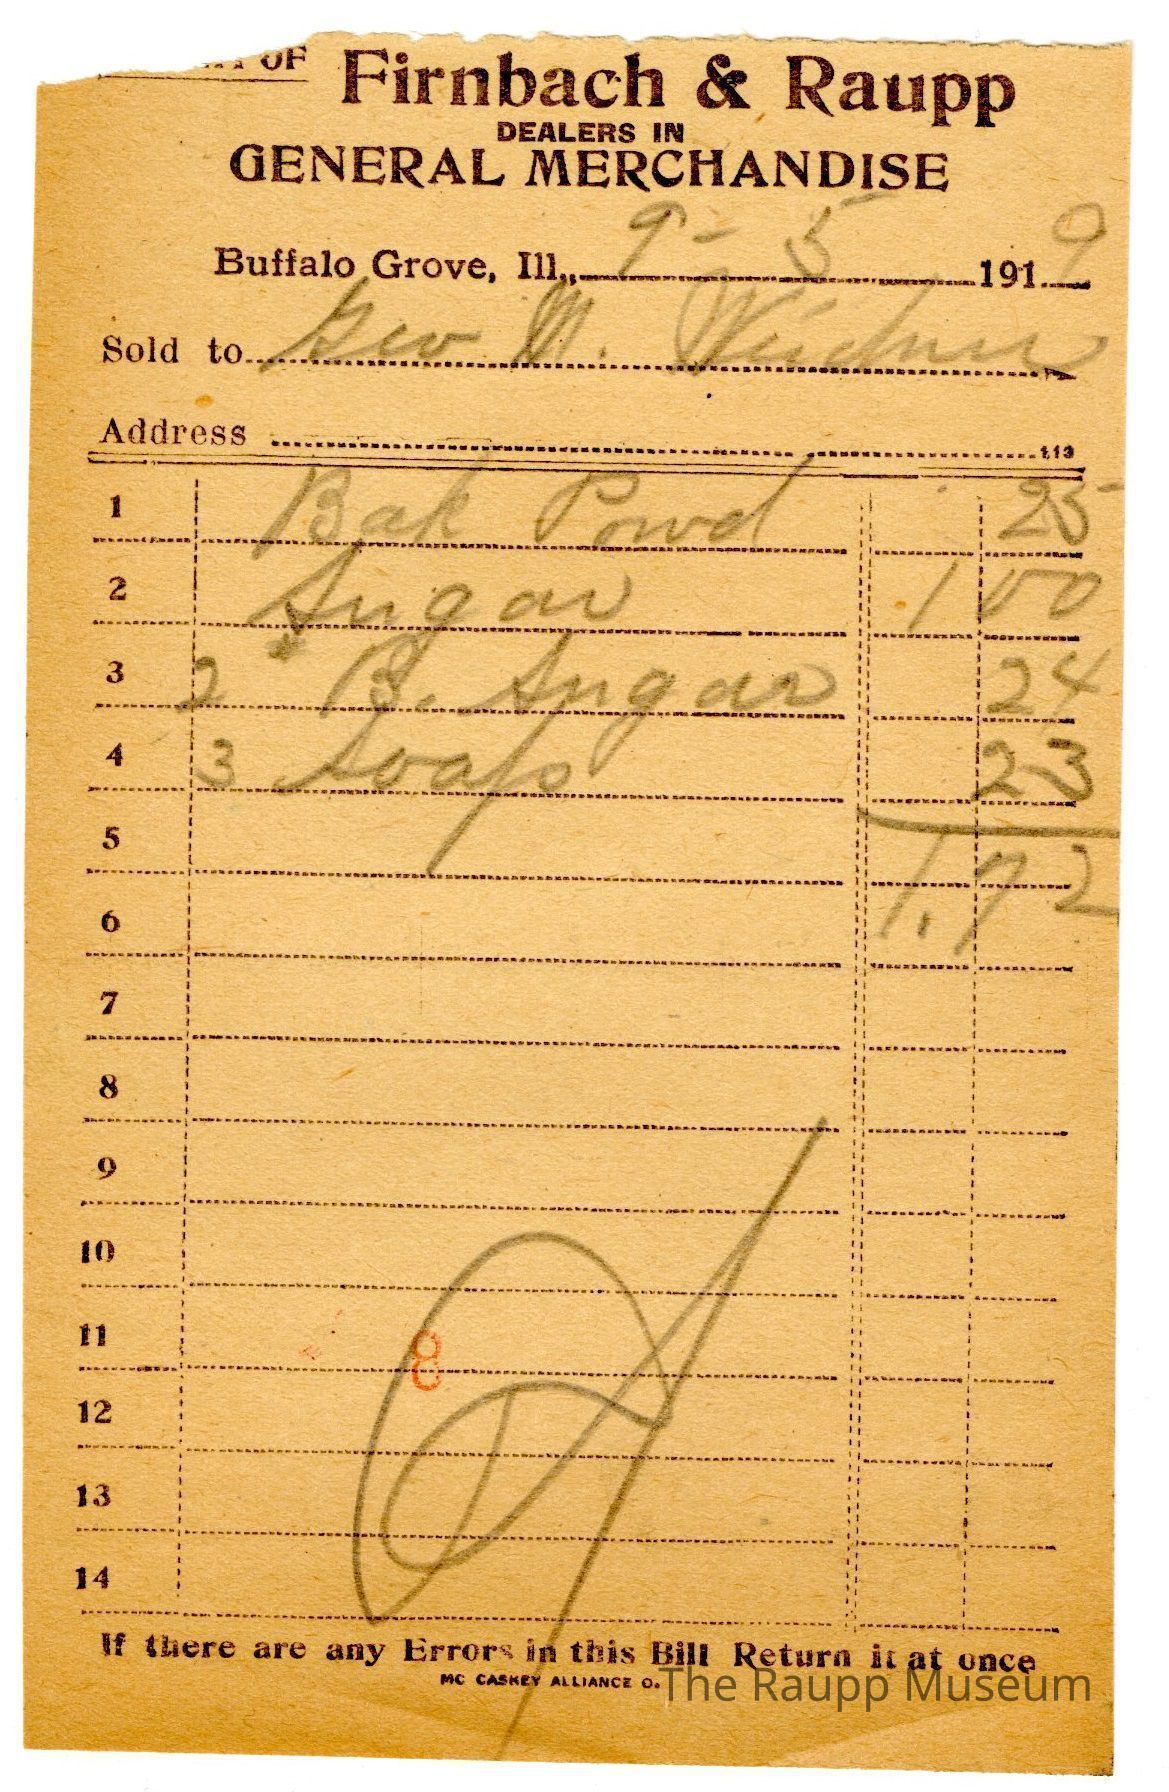 OF
Firnbach & Raupp
DEALERS IN
GENERAL MERCHANDISE
Buffalo Grove, Ill., 9-5 1919
Sold to Geo M. Weidner
Address
113
1 Bak Powd 25
2 Sugar 1 00
3 2 B. Sugar 24
4 3 Soap 23
5 1.72
6
7
8
9
10
11
8
12
13
14
If there are any Errors in this Bill Return it at once
MC CASKEY ALLIANCE O.
The Raupp Museum